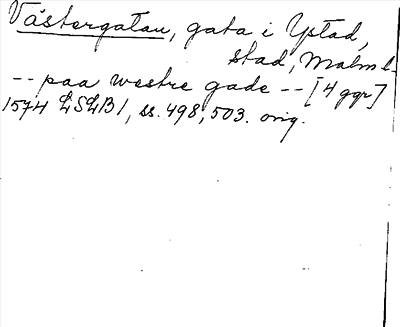 Västergatan, gata i Ystad,
stad, Malm l.
-- paa westre gade -- [4 ggr]
1574 LSLB 1, ss. 498, 503. orig.